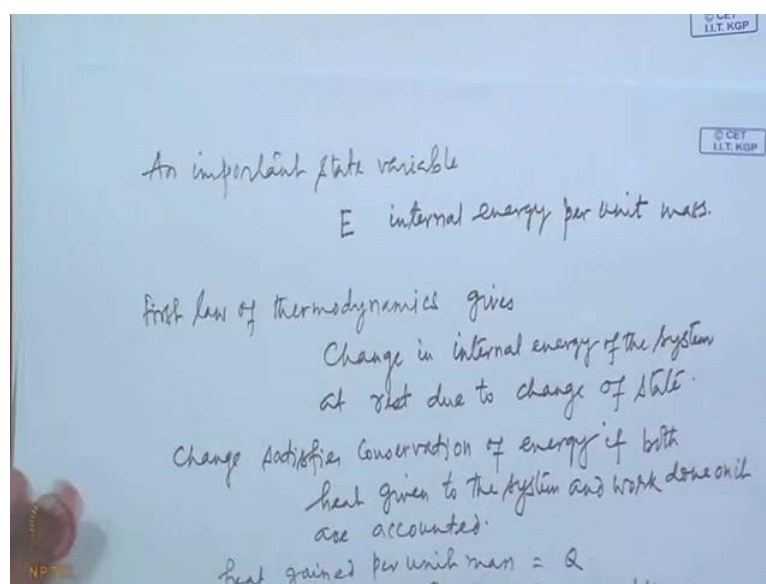 © CET
I.I.T. KGP
© CET
I.I.T. KGP
An important state variable
E internal energy per unit mass.
First law of thermodynamics gives
Change in internal energy of the system
at rest due to change of state.
Change satisfies conservation of energy if both
heat given to the system and work done on it
are accounted.
heat gained per unit mass = Q
NPTEL